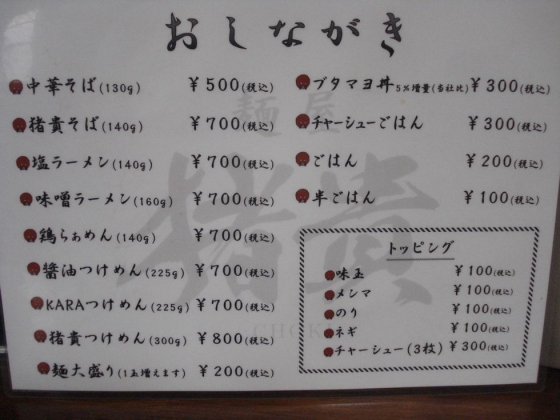 おしながき
中華そば(130g) ¥500(税込)
猪貴そば(140g) ¥700(税込)
塩ラーメン(140g) ¥700(税込)
味噌ラーメン(160g) ¥700(税込)
鶏らぁめん(140g) ¥700(税込)
醤油つけめん(225g) ¥700(税込)
KARAつけめん(225g) ¥700(税込)
猪貴つけめん(300g) ¥800(税込)
麺大盛り(1玉増えます) ¥200(税込)
ブタマヨ丼5%増量(当社比) ¥300(税込)
チャーシューごはん ¥300(税込)
ごはん ¥200(税込)
半ごはん ¥100(税込)
トッピング
味玉 ¥100(税込)
メンマ ¥100(税込)
のり ¥100(税込)
ネギ ¥100(税込)
チャーシュー(3枚) ¥300(税込)
麺屋
猪貴